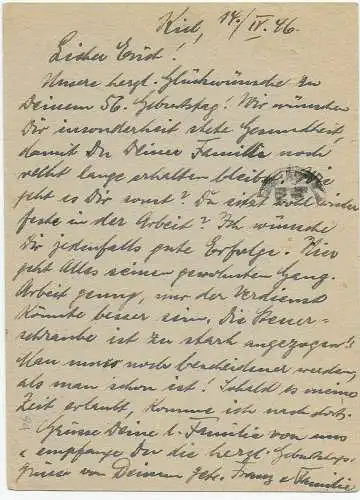 Kiel, 14./IV. 46.
Lieber Erich!
Unsere herzl. Glückwünsche zu
Deinem 56. Geburtstag! Wir wünschen
Dir insonderheit stets Gesundheit,
damit Du Deiner Familie noch
recht lange erhalten bleibst. Wie
geht es Dir sonst? Du sitzt wohl wieder
feste in der Arbeit? Ich wünsche
Dir jedenfalls gute Erfolge. Hier
geht Alles seinen gewohnten Gang.
Arbeit genug, nur der Verdienst
könnte besser sein. Die Steuer-
schraube ist zu stark angezogen!!
Man muss noch bescheidener werden,
als man schon ist! Sobald es meine
Zeit erlaubt, komme ich nach dort.
Grüsse Deine l. Familie von uns
u empfange Du die herzl. Geburtstags-
grüsse von Deinem getr. Franz u Familie